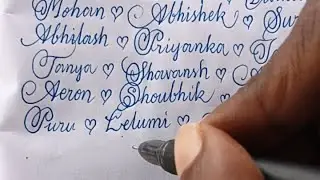 Mohan ♡ Abhishek ♡
Abhilash ♡ Priyanka ♡
Tanya ♡ Bhavansh ♡
Aeron ♡ Shoubhik ♡
Puru ♡ Lelumi ♡